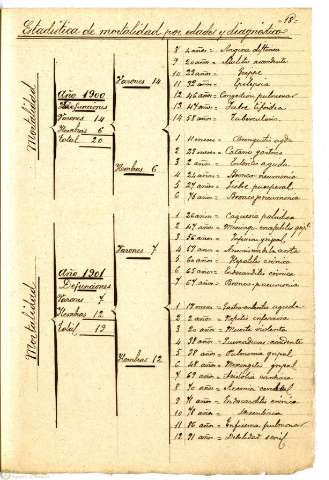 -18-
Estadística de mortalidad por edades y diagnóstico
8 4 años = Angina diftérica
9 20 años = Mielitis
10 23 años = Grippe
11 32 años = Epilepsia
12 46 años = Congestion pulmonar
13 47 años = Fiebre tifoidea
14 58 años = Tuberculosis
Varones 14
Mortalidad
Año 1900
Defunciones
Varones 14
Hembras 6
Total 20
1 11 meses = Bronquitis agda
2 28 meses = Catarro gástrico
3 2 años = Enteritis aguda
4 24 años = Bronco neumonia
5 27 años = Fiebre puerperal
6 76 años = Bronco neumonia
Hembras 6
1 26 años = Caquexia paludica
2 47 años =
3 56 años = gripal
4 57 años = Aneurisma de la aorta
5 60 años = Hepatitis crónica
6 65 años = Endocarditis crónica
7 67 años = Bronco-pneumonia
Varones 7
Mortalidad
Año 1901
Defunciones
Varones 7
Hembras 12
Total 19
1 18 meses = aguda
2 2 años =
3 20 años = Muerte violenta
4 38 años = Quemaduras
5 38 años = Pulmonia gripal
6 48 años = Meningitis gripal
7 69 años = Asistolia cardiaca
8 70 años = Anemia cerebral
9 71 años = Endocarditis crónica
10 78 años =
11 86 años = Enfisema pulmonar
12 91 años = Debilidad senil
Hembras 12